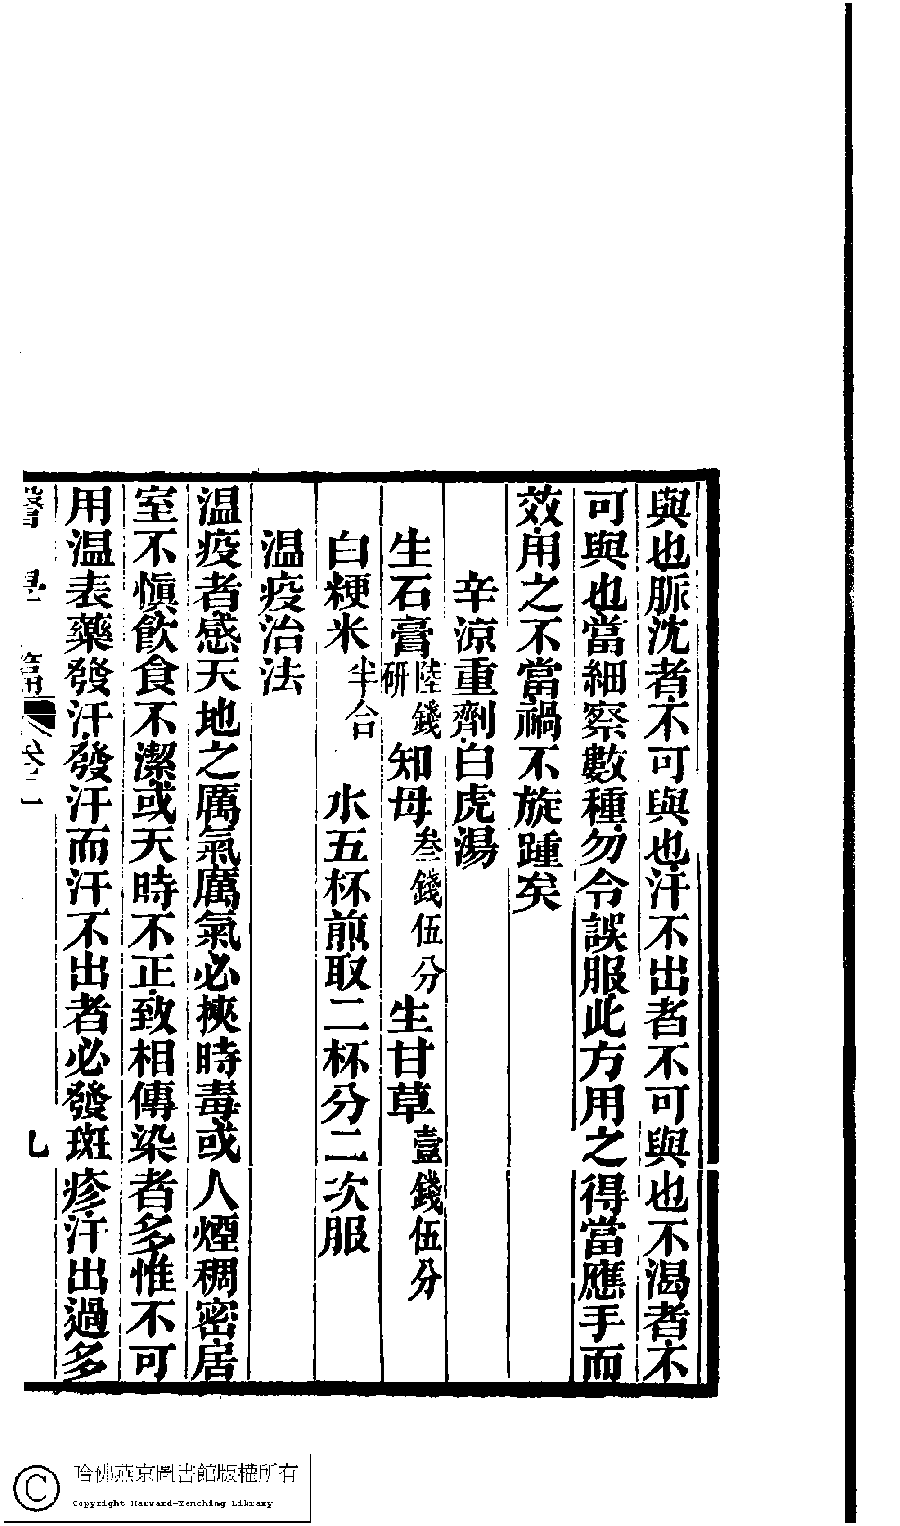 與也脈沈者不可與也汗不出者不可與也不渴者不
可與也當細察數種勿令誤服此方用之得當應手而
效用之不當禍不旋踵矣
辛涼重劑白虎湯
生石膏陸錢研知母叁錢伍分生甘草壹錢伍分
白粳米半合 水五杯煎取二杯分二次服
温疫治法
温疫者感天地之厲氣厲氣必挾時毒或人煙稠密居
室不慎飲食不潔或天時不正致相傳染者多惟不可
用温表藥發汗發汗而汗不出者必發斑疹汗出過多
卷二
哈佛燕京圖書館版權所有
Copyright Harvard-Yenching Library